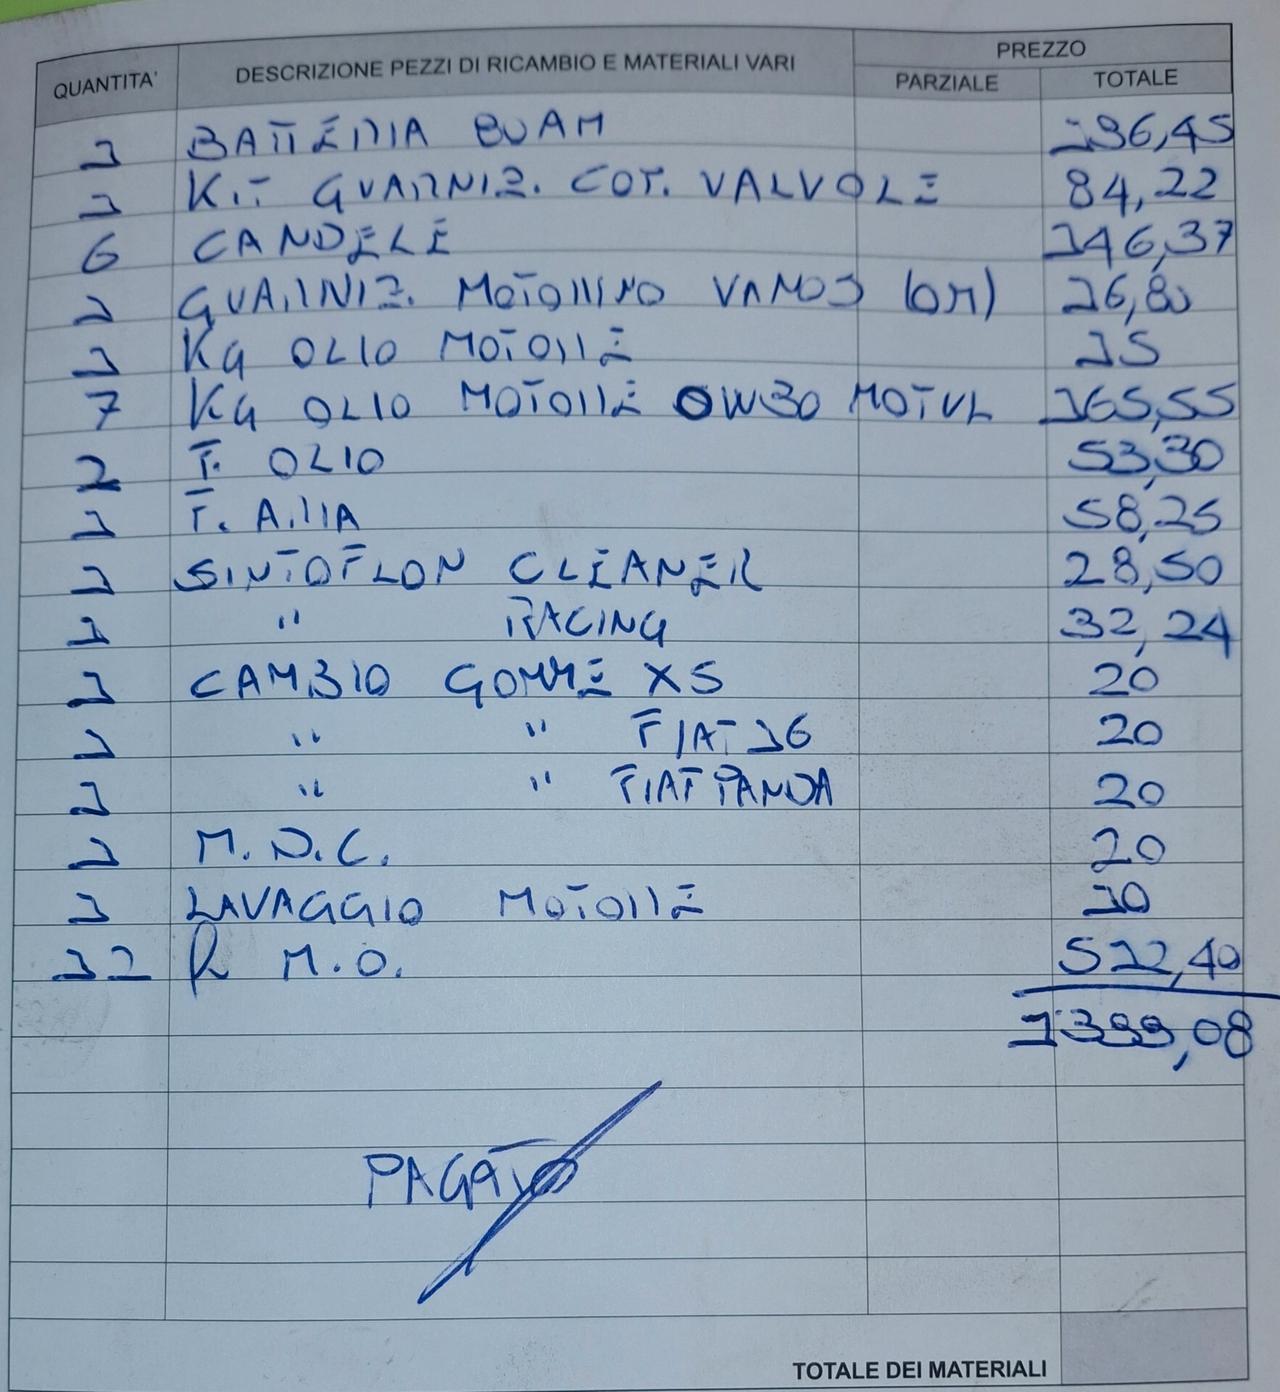 QUANTITA' DESCRIZIONE PEZZI DI RICAMBIO E MATERIALI VARI PREZZO
PARZIALE TOTALE
1 BATTERIA 80AH 196,45
1 KIT GUARNIZ. COP. VALVOLE 84,22
6 CANDELE 146,37
1 GUARNIZ. MOTORINO VANOS (OR) 16,80
1 KG OLIO MOTORE 15
7 KG OLIO MOTORE 0W30 MOTUL 165,55
2 F. OLIO 53,30
1 F. ARIA 58,25
1 SINTOFLON CLEANER 28,50
1 " RACING 32,24
1 CAMBIO GOMME X5 20
1 " " FIAT 16 20
1 " " FIAT PANDA 20
1 M.D.C. 20
1 LAVAGGIO MOTORE 10
12 h M.O. 512,40
1399,08
PAGATO
TOTALE DEI MATERIALI